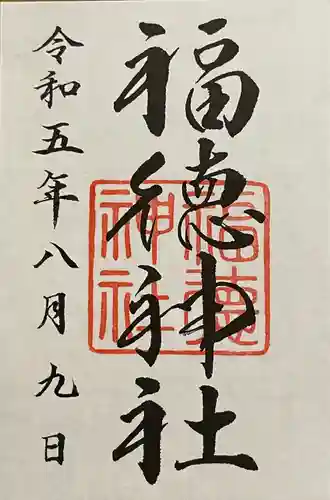 福德神社
福德神社
令和五年八月九日